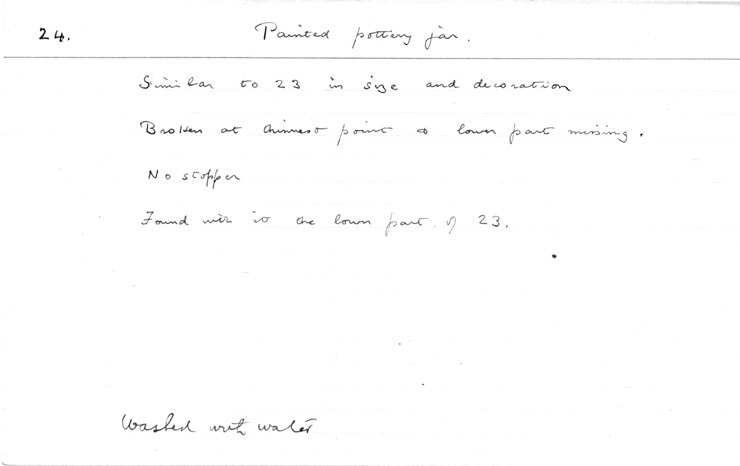 24. Painted pottery jar.
Similar to 23 in size and decoration
Broken at thinnest point & lower part missing.
No stopper
Found with it the lower part of 23.
Washed with water